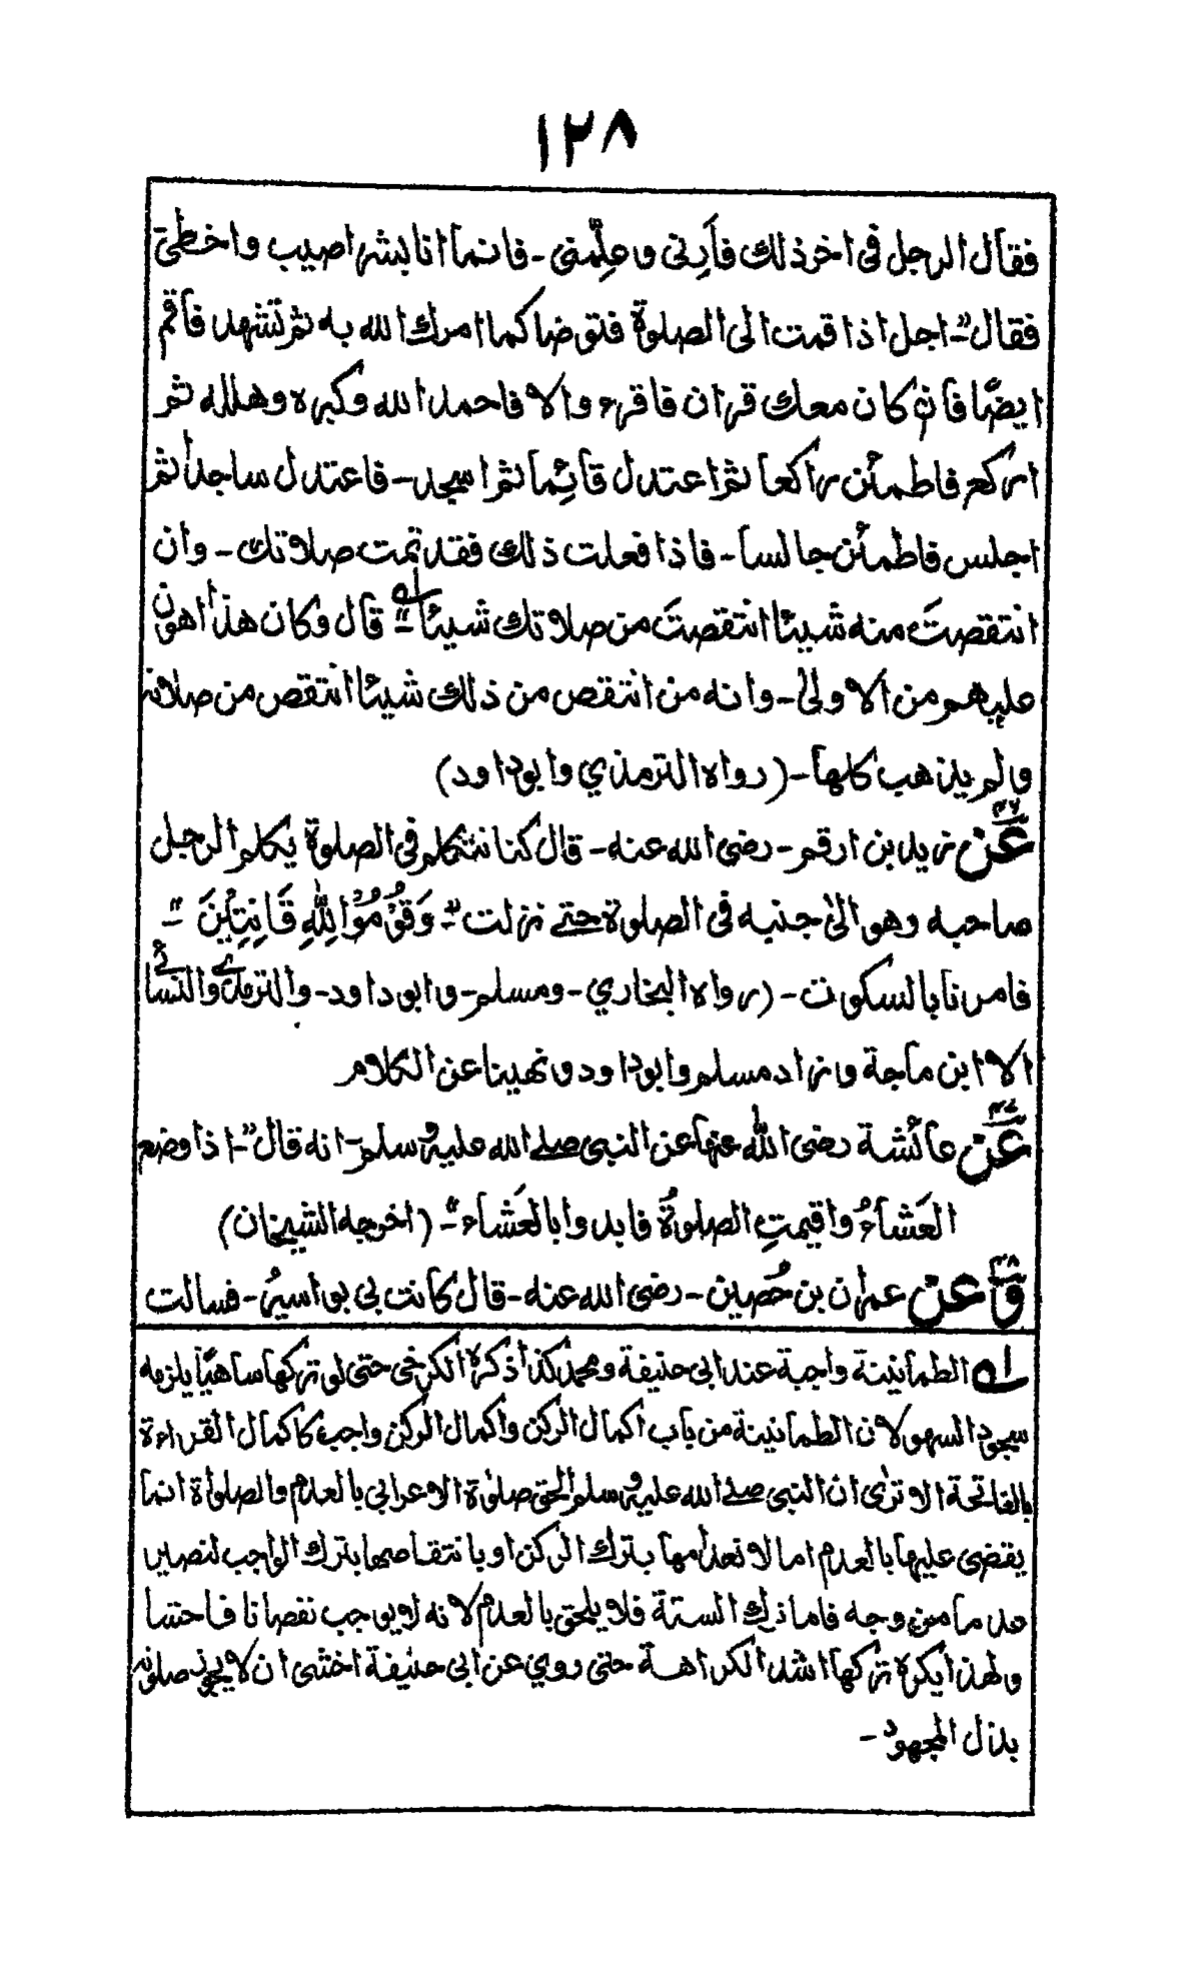 ١٢٨
فقال الرجل فى اخر ذلك فأَرِنى وعلِّمنى - فانما انا بشر اصيب واخطئ
فقال "- اجل اذا قمت الى الصلوة فتوضا كما امرك الله به ثم تشهد فأقم
ايضًا فان كان معك قران فاقرء والا فاحمد الله وكبره وهلله ثم
اركع فاطمأن راكعا ثم اعتدل قائما ثم اسجد - فاعتدل ساجدا ثم
اجلس فاطمأن جالسا - فاذا فعلت ذلك فقد تمت صلاتك - وان
انتقصتَ منه شيئا انتقصتَ من صلاتك شيئا"- له قال وكان هذا اهون
عليهم من الاولىٰ - وانه من انتقص من ذلك شيئا انتقص من صلاته
ولم يذهب كلها - (رواه الترمذي وابوداود)
٤٦ عَن زيد بن ارقم - رضى الله عنه - قال كنا نتكلم فى الصلوة يكلم الرجل
صاحبه وهو الىٰ جنبه فى الصلوة حتے نزلت "- وَقُوْمُوْا لِلّٰهِ قَانِتِيْنَ "-
فامرنا بالسكوت - (رواه البخاري - ومسلم - وابوداود - والترمذے والنسائے
الا ابن ماجة وزاد مسلم وابوداود ونهينا عن الكلام
٤٧ عَن عائشة رضى الله عنها عن النبى صلے الله عليه وسلم - انه قال "- اذا وضع
العَشآءُ واقيمتِ الصلوةُ فابدوا بالعَشاء "- (اخرجه الشيخان)
٤٨ وَعن عمران بن حُصين - رضى الله عنه - قال كانت بى بواسيرُ - فسالت
له الطمانينة واجبة عند ابى حنيفة ومحمد كذا ذكره الكرخى حتى لو تركها ساهيًا يلزمه
سجود السهو لان الطمانينة من باب اكمال الركن واكمال الركن واجب كاكمال القراءة
بالفاتحة الا ترى ان النبى صلے الله عليه وسلم الحق صلٰوة الاعرابى بالعدم والصلوٰة انما
يقضى عليها بالعدم اما لانعدامها بترك الركن او بانتقاصها بترك الواجب لتصير
عدما من وجه فاما ترك السنة فلا يلحق بالعدم لانه لا يوجب نقصانا فاحشا
ولهذا يكره تركها اشد الكراهة حتى روي عن ابى حنيفة اخشى ان لا يجوز صلوته
بذل المجهود -